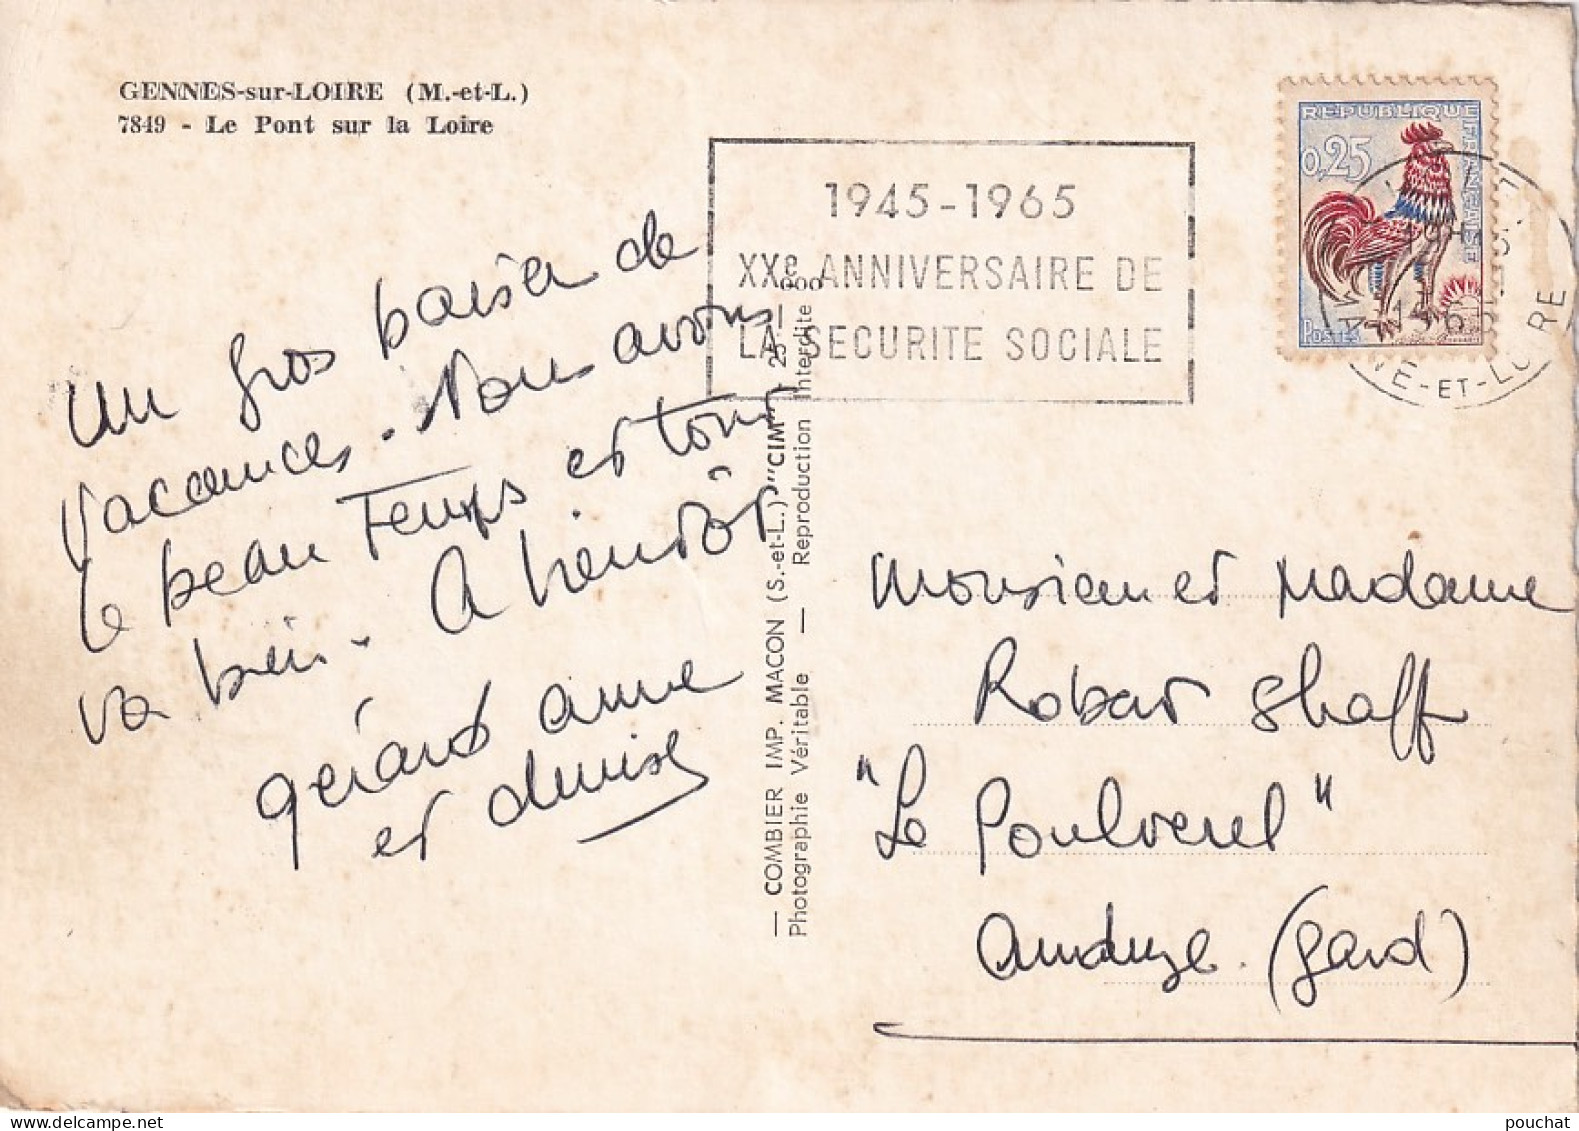 GENNES-sur-LOIRE (M.-et-L.)
7849 - Le Pont sur la Loire
1945-1965
XXe ANNIVERSAIRE DE
LA SECURITE SOCIALE
REPUBLIQUE FRANÇAISE
0,25
POSTES
MAINE-ET-LOIRE
un gros baiser de
vacances. Nous avons
le beau temps et tout
va bien. A bientôt
gérard anne
et denise
— COMBIER IMP. MACON (S.-et-L.) "CIM"
Photographie Véritable — Reproduction Interdite
Monsieur et Madame
Robert Shaff
"Le Poulverel"
Anduze. (Gard)
pouchat